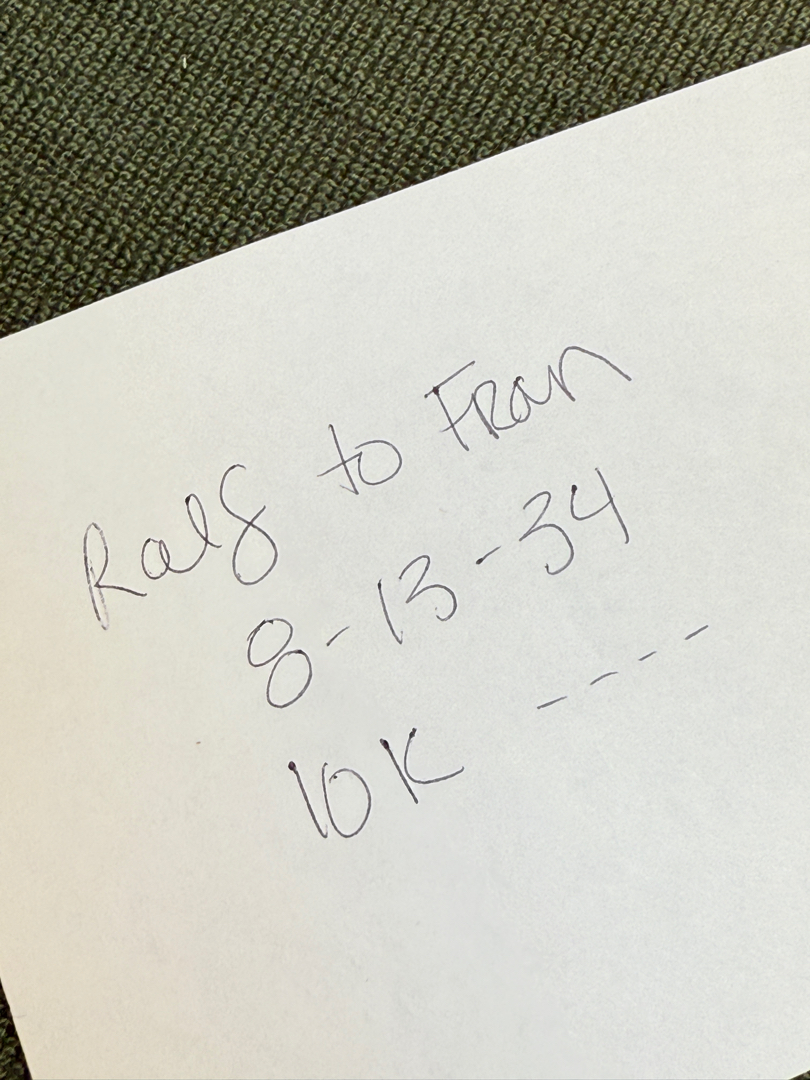 Ralf to Fran
8-13-34
10K ----